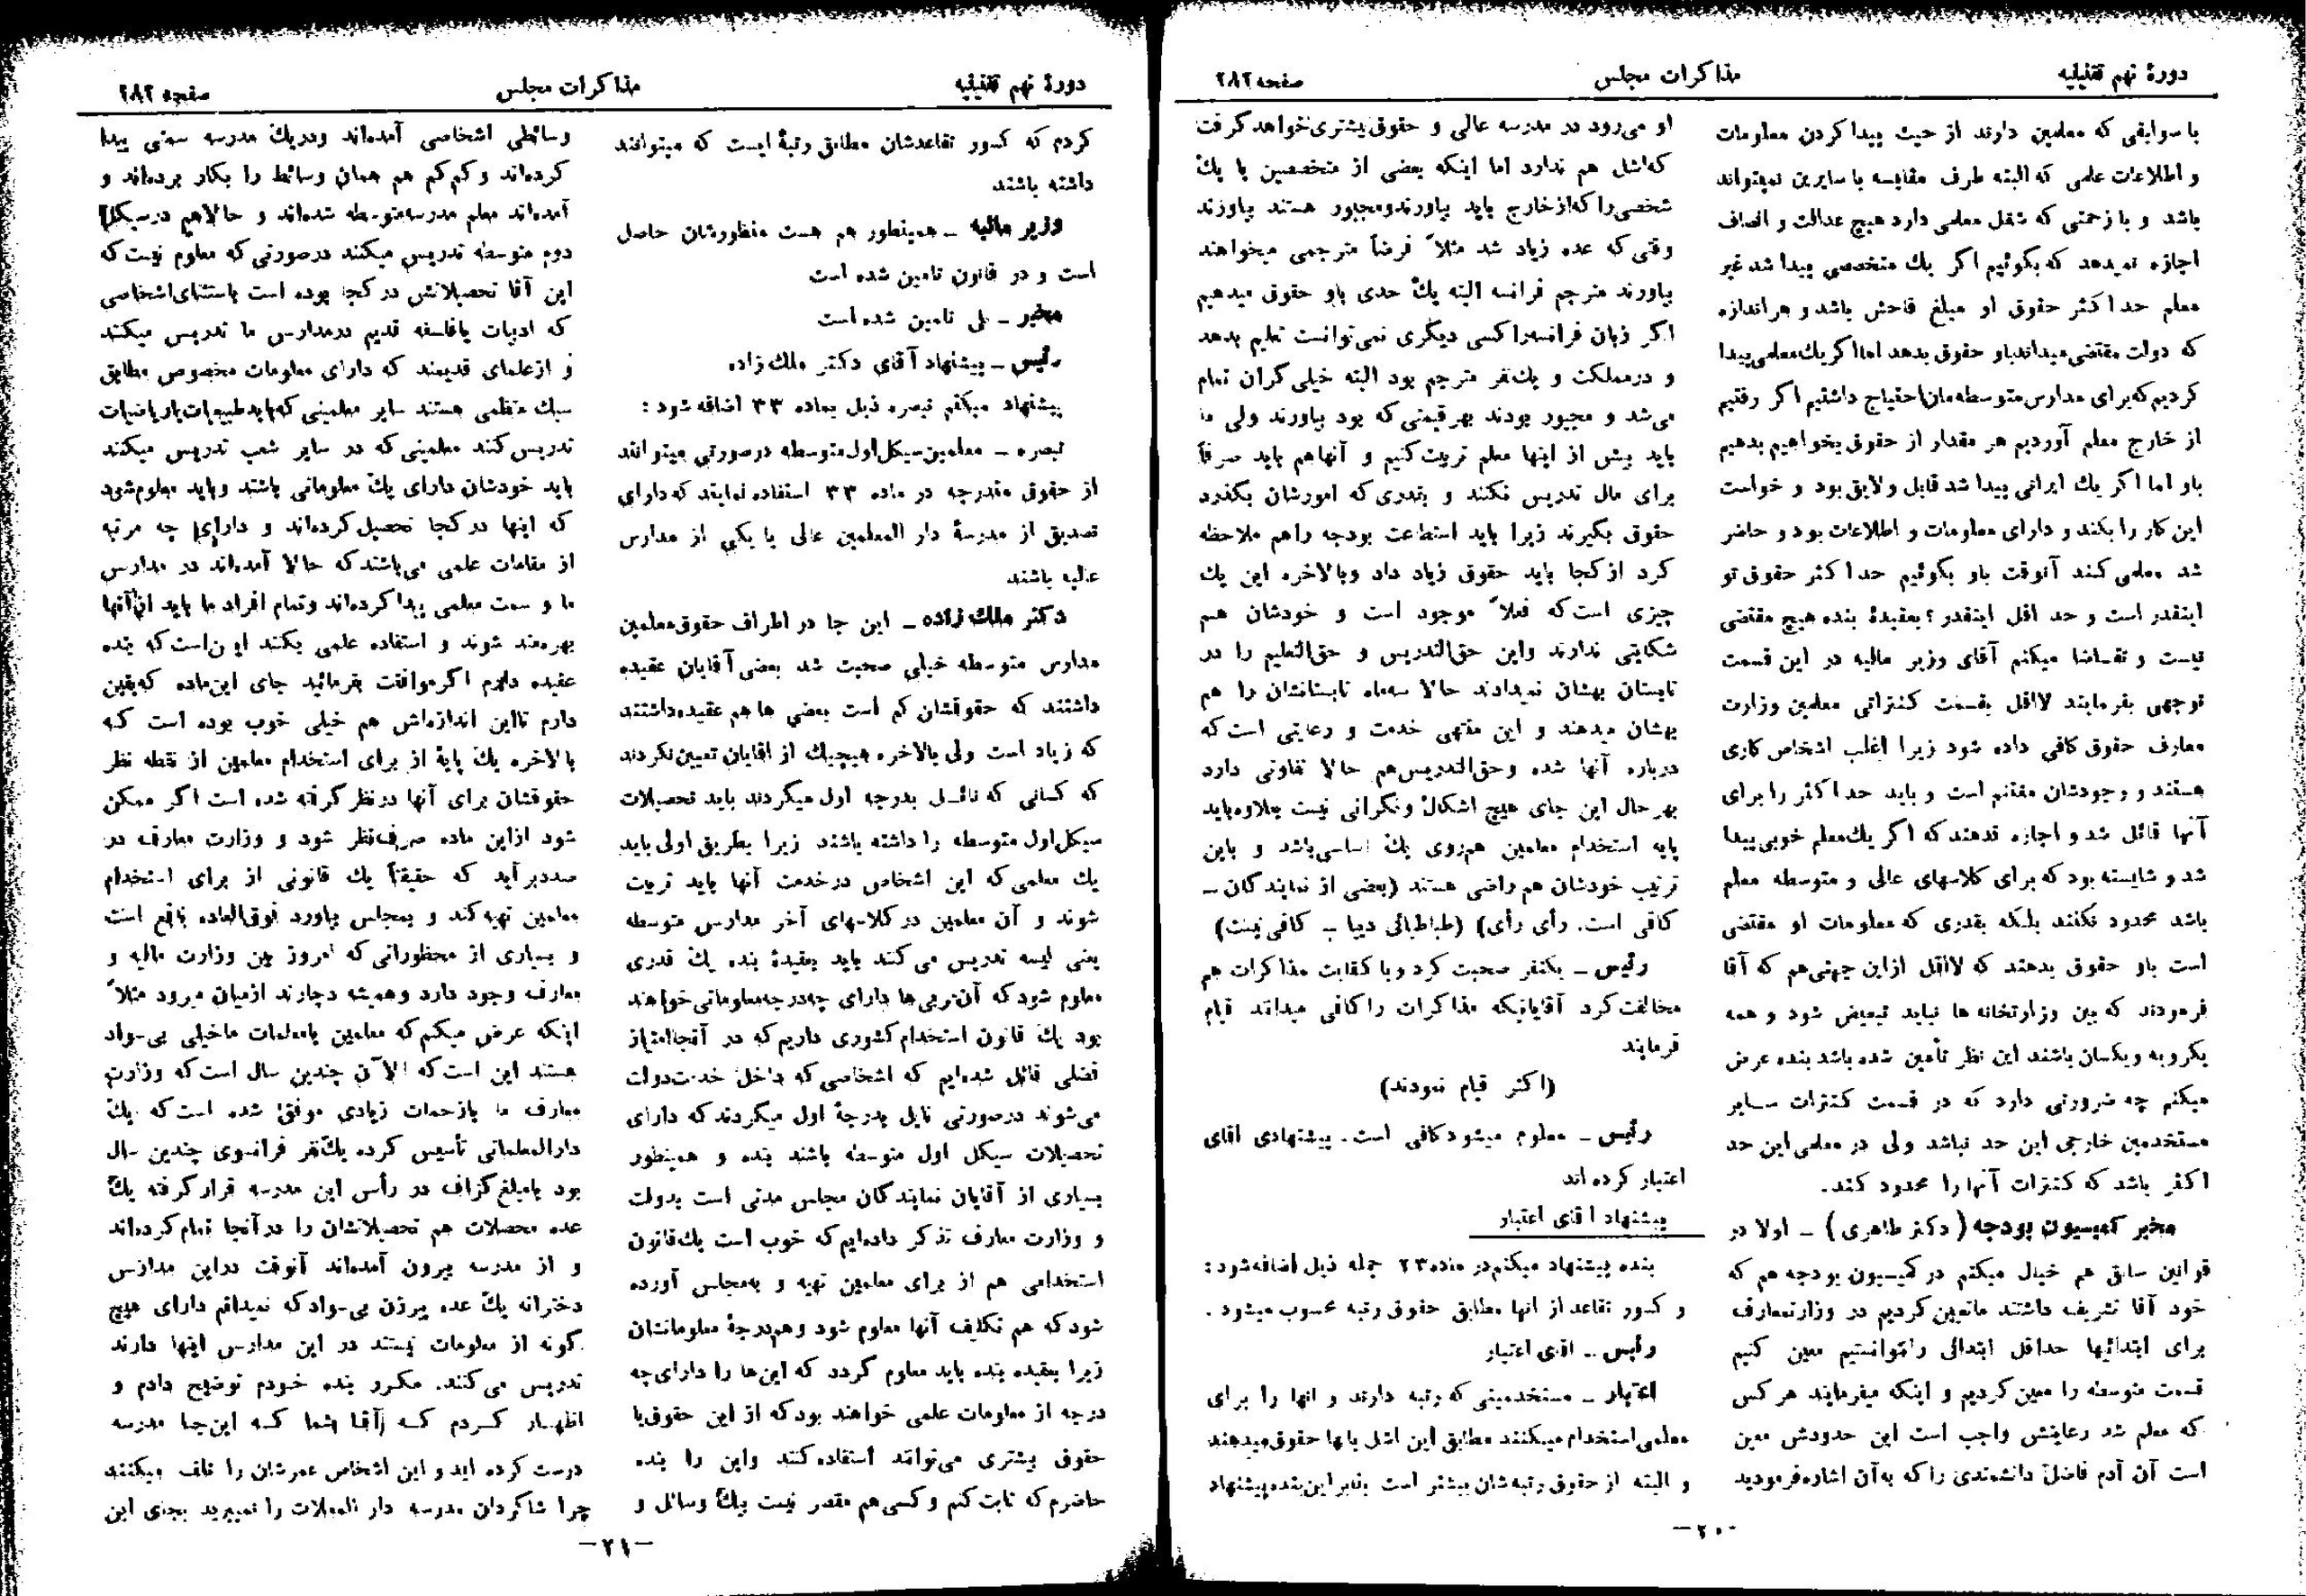 دورهٔ نهم تقنینیه
مذاکرات مجلس
صفحه ۲۸۲
با سوابقی که معلمین دارند از حیث پیدا کردن معلومات
و اطلاعات علمی که البته طرف مقایسه با سایرین نمیتواند
باشد و با زحمتی که شغل معلمی دارد هیچ عدالت و انصاف
اجازه نمیدهد که بگوئیم اگر یك متخصصی پیدا شد غیر
معلم حداکثر حقوق او مبلغ فاحش باشد و هر اندازه
که دولت مقتضی میداند باو حقوق بدهد اما اگر یك معلمی پیدا
کردیم که برای مدارس متوسطه مان احتیاج داشتیم اگر رفتیم
از خارج معلم آوردیم هر مقدار از حقوق بخواهیم بدهیم
باو اما اگر یك ایرانی پیدا شد قابل و لایق بود و خواست
این کار را بکند و دارای معلومات و اطلاعات بود و حاضر
شد معلمی کند آنوقت باو بگوئیم حداکثر حقوق تو
اینقدر است و حد اقل اینقدر؟ بعقیدهٔ بنده هیچ مقتضی
نیست و تقاضا میکنم آقای وزیر مالیه در این قسمت
توجهی بفرمایند لااقل بقسمت کنتراتی معلمین وزارت
معارف حقوق کافی داده شود زیرا اغلب اشخاص کاری
هستند و وجودشان مغتنم است و باید حداکثر را برای
آنها قائل شد و اجازه ندهند که اگر یك معلم خوبی پیدا
شد و شایسته بود که برای کلاسهای عالی و متوسطه معلم
باشد محدود نکنند بلکه بقدری که معلومات او مقتضی
است باو حقوق بدهند که لااقل ازاین جهتی هم که آقا
فرمودند که بین وزارتخانه ها نباید تبعیض شود و همه
یکرویه و یکسان باشند این نظر تأمین شده باشد بنده عرض
میکنم چه ضرورتی دارد که در قسمت کنترات سایر
مستخدمین خارجی این حد نباشد ولی در معلمی این حد
اکثر باشد که کنترات آنها را محدود کند.
مخبر کمیسیون بودجه (دکتر طاهری) ـ اولا در
قوانین سابق هم خیال میکنم در کمیسیون بودجه هم که
خود آقا تشریف داشتند ما تعیین کردیم در وزارتمعارف
برای ابتدائیها حداقل ابتدائی را توانستیم معین کنیم
قسمت متوسطه را معین کردیم و اینکه میفرمایند هر کس
که معلم شد رعایتش واجب است این حدودش معین
است آن آدم فاضل دانشمندی را که به آن اشاره فرمودید
او می‌رود در مدرسه عالی و حقوق بیشتری خواهد گرفت
که اشل هم ندارد اما اینکه بعضی از متخصصین یا یك
شخصی را که از خارج باید بیاورند و مجبور هستند بیاورند
وقتی که عده زیاد شد مثلاً فرضاً مترجمی میخواهند
بیاورند مترجم فرانسه البته یك حدی باو حقوق میدهیم
اگر زبان فرانسه را کسی دیگری نمی‌توانست تعلیم بدهد
و در مملکت و یك نفر مترجم بود البته خیلی گران تمام
می‌شد و مجبور بودند بهر قیمتی که بود بیاورند ولی ما
باید بیش از اینها معلم تربیت کنیم و آنها هم باید صرفاً
برای مال تدریس نکنند و بقدری که امورشان بگذرد
حقوق بگیرند زیرا باید استطاعت بودجه را هم ملاحظه
کرد از کجا باید حقوق زیاد داد و بالاخره این یك
چیزی است که فعلاً موجود است و خودشان هم
شکایتی ندارند و این حق‌التدریس و حق‌التعلیم را در
تابستان بهشان نمیدادند حالا سه‌ماه تابستانشان را هم
بهشان میدهند و این منتهی خدمت و رعایتی است که
درباره آنها شده و حق‌التدریس هم حالا تفاوتی دارد
بهر حال این جای هیچ اشکال و نگرانی نیست بعلاوه باید
پایه استخدام معلمین هم روی یك اساسی باشد و باین
ترتیب خودشان هم راضی هستند (بعضی از نمایندگان ـ
کافی است. رأی رأی) (طباطبائی دیبا ـ کافی نیست)
رئیس ـ یکنفر صحبت کرد و با کفایت مذاکرات هم
مخالفت کرد آقایانیکه مذاکرات را کافی میدانند قیام
فرمایند
(اکثر قیام نمودند)
رئیس ـ معلوم میشود کافی است. پیشنهادی اقای
اعتبار کرده اند
پیشنهاد اقای اعتبار
بنده پیشنهاد میکنم در ماده ۲۳ جمله ذیل اضافه شود:
و کسور تقاعد از انها مطابق حقوق رتبه محسوب میشود.
رئیس ـ اقای اعتبار
اعتبار ـ مستخدمینی که رتبه دارند و انها را برای
معلمی استخدام میکنند مطابق این اشل بانها حقوق میدهند
و البته از حقوق رتبه‌شان بیشتر است بنابراین بنده پیشنهاد
ـ۲۰ـ
دورهٔ نهم تقنینیه
مذاکرات مجلس
صفحه ۲۸۲
کردم که کسور تقاعدشان مطابق رتبهٔ ایست که میتوانند
داشته باشند
وزیر مالیه ـ همینطور هم هست منظورشان حاصل
است و در قانون تامین شده است
مخبر ـ بلی تامین شده است
رئیس ـ پیشنهاد آقای دکتر ملك زاده
پیشنهاد میکنم تبصره ذیل بماده ۳۳ اضافه شود:
تبصره ـ معلمین سیکل اول متوسطه درصورتی میتوانند
از حقوق مندرجه در ماده ۳۳ استفاده نمایند که دارای
تصدیق از مدرسهٔ دار المعلمین عالی یا یکی از مدارس
عالیه باشند
دکتر ملك زاده ـ این جا در اطراف حقوق معلمین
مدارس متوسطه خیلی صحبت شد بعضی آقایان عقیده
داشتند که حقوقشان کم است بعضی ها هم عقیده داشتند
که زیاد است ولی بالاخره هیچیك از اقایان تعیین نکردند
که کسانی که نائل بدرجه اول میگردند باید تحصیلات
سیکل اول متوسطه را داشته باشند زیرا بطریق اولی باید
یك معلمی که این اشخاص در خدمت آنها باید تربیت
شوند و آن معلمین در کلاسهای آخر مدارس متوسطه
یعنی لیسه تدریس می‌کنند باید بعقیدهٔ بنده یك قدری
معلوم شود که آن مربی ها دارای چه درجه معلوماتی خواهند
بود یك قانون استخدام کشوری داریم که در آنجا امتیاز
فضلی قائل شده‌ایم که اشخاصی که داخل خدمت دولت
می‌شوند درصورتی نایل بدرجهٔ اول میگردند که دارای
تحصیلات سیکل اول متوسطه باشند بنده و همینطور
بسیاری از آقایان نمایندگان مجلس مدتی است بدولت
و وزارت معارف تذکر داده‌ایم که خوب است یك قانون
استخدامی هم از برای معلمین تهیه و به مجلس آورده
شود که هم تکلیف آنها معلوم شود و هم درجهٔ معلوماتشان
زیرا بعقیده بنده باید معلوم گردد که این ها را دارای چه
درجه از معلومات علمی خواهند بود که از این حقوق یا
حقوق بیشتری می‌توانند استفاده کنند و این را بنده
حاضرم که ثابت کنم و کسی هم مقصر نیست یك وسائل و
وسائطی اشخاصی آمده‌اند و در یك مدرسه سمتی پیدا
کرده‌اند و کم کم هم همان وسائط را بکار برده‌اند و
آمده‌اند معلم مدرسه متوسطه شده‌اند و حالا هم در سیکل
دوم متوسطه تدریس میکنند درصورتی که معلوم نیست که
این آقا تحصیلاتش در کجا بوده است باستثنای اشخاصی
که ادبیات یا فلسفه قدیم در مدارس ما تدریس میکنند
و از علمای قدیمند که دارای معلومات مخصوص مطابق
سبك متقدمی هستند سایر معلمینی که باید طبیعیات یا ریاضیات
تدریس کنند معلمینی که در سایر شعب تدریس میکنند
باید خودشان دارای یك معلوماتی باشند و باید معلوم شود
که اینها در کجا تحصیل کرده‌اند و دارای چه مرتبه
از مقامات علمی می‌باشند که حالا آمده‌اند در مدارس
ما و سمت معلمی پیدا کرده‌اند و تمام افراد ما باید از آنها
بهره‌مند شوند و استفاده علمی بکنند این است که بنده
عقیده دارم اگر موافقت بفرمائید جای این ماده که یقین
دارم تا این اندازه‌اش هم خیلی خوب بوده است که
بالاخره یك پایهٔ از برای استخدام معلمین از نقطه نظر
حقوقشان برای آنها در نظر گرفته شده است اگر ممکن
شود از این ماده صرف‌نظر شود و وزارت معارف در
صدد برآید که حقیقتاً یك قانونی از برای استخدام
معلمین تهیه کند و بمجلس بیاورد فوق‌العاده نافع است
و بسیاری از محظوراتی که امروز بین وزارت مالیه و
معارف وجود دارد و همیشه دچارند از میان میرود مثلاً
اینکه عرض میکنم که معلمین یا معلمات ما خیلی بی‌سواد
هستند این است که الآن چندین سال است که وزارت
معارف ما با زحمات زیادی موفق شده است که یك
دارالمعلماتی تأسیس کرده یك نفر فرانسوی چندین سال
بود با مبلغ گزاف در رأس این مدرسه قرار گرفته یك
عده محصلات هم تحصیلاتشان را در آنجا تمام کرده‌اند
و از مدرسه بیرون آمده‌اند آنوقت در این مدارس
دخترانه یك عده پیرزن بی‌سواد که نمیدانم دارای هیچ
گونه از معلومات نیستند در این مدارس اینها دارند
تدریس می‌کنند. مکرر بنده خودم توضیح دادم و
اظهار کردم که آقا شما که این‌جا مدرسه
درست کرده اید و این اشخاص عمرشان را تلف میکنند
چرا شاگردان مدرسه دار المعلمات را نمیبرید بجای این
ـ۲۱ـ